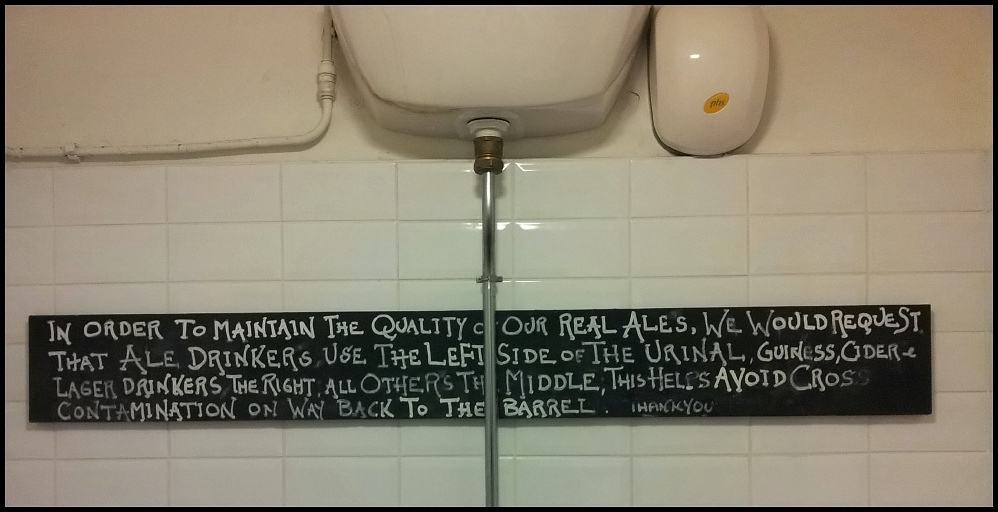 phs
IN ORDER TO MAINTAIN THE QUALITY OUR REAL ALES, WE WOULD REQUEST
THAT ALE DRINKERS USE THE LEFT SIDE OF THE URINAL, GUINESS, CIDER &
LAGER DRINKERS THE RIGHT, ALL OTHERS TH MIDDLE, THIS HELPS AVOID CROSS
CONTAMINATION ON WAY BACK TO THE BARREL. THANKYOU